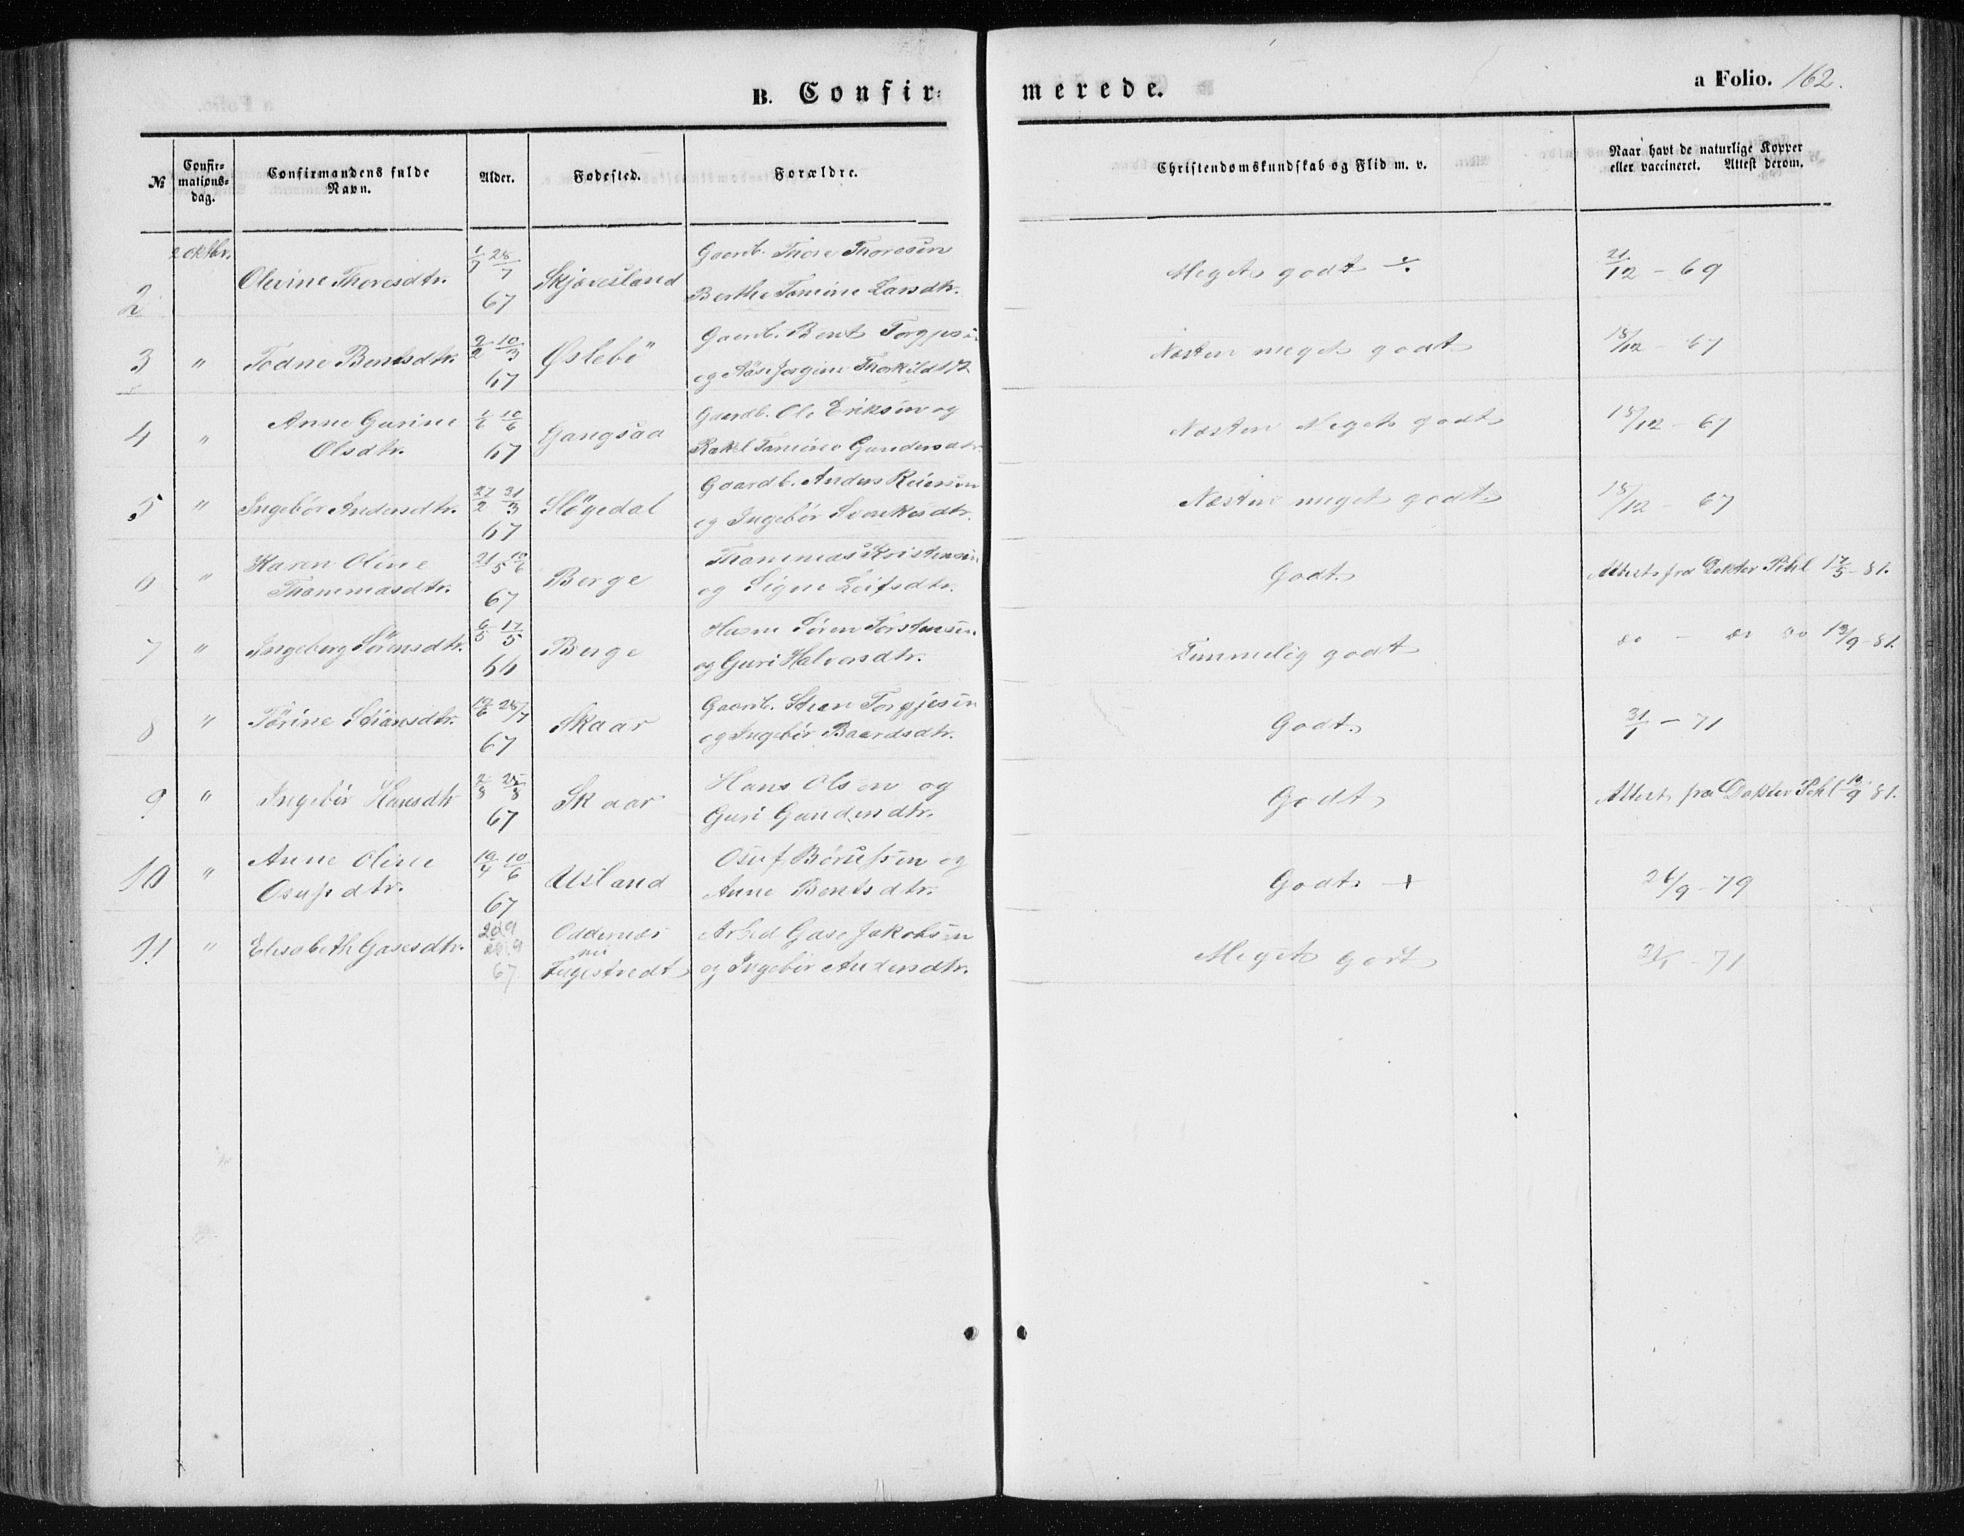 B. Confir-merede.
a Folio. 162.
№
Confir-
mations-
dag.
Confirmandens fulde
Navn.
Alder.
Fødested.
Forældre.
Christendomskundskab og Flid m. v.
Naar havt de naturlige Kopper
eller vaccineret. Attest derom.
2 oktbr.
2 Olevine Thoresdtr. 1/7 28/7 67 Skjævesland
Gaardb. Thore Thoresen
Berthe Tomine Larsdtr.
Meget godt 21/12 - 69
3 " Todne Bentsdtr. 2/2 10/3 67 Øslebö
Gaardb. Bent
og Aase Jorgine
Næsten meget godt 18/12 - 67
4 " Anne Gurine
Olsdtr. 10/6 67 Gangsaa
Gaardb. Ole Eriksen og
Rakel Gundersdtr.
Næsten Meget godt 18/12 - 67
5 " Ingebör Andersdtr. 27/2 31/3 67 Slögedal
Gaardb. Anders Reiersen
og Ingebör
Næsten meget godt 18/12 - 67
6 " Karen Oline
Thommasdtr. 21/5 10/6 67 Berge
Thommas Kristensen
og Signe Leifsdtr.
Godt Attest fra Dokter Pihl 17/5 - 81.
7 " Ingeborg Sörensdtr. 6/5 17/5 66 Berge
Husm Sören Torstensen
og Guri Halvorsdtr.
Temmelig godt do - do do 13/9 - 81.
8 " Törine 28/7 67 Skaar
Gaardb. Torgjesen
og Ingebör Baardsdtr.
Godt 31/1 - 71
9 " Ingebör Hansdtr 2/8 25/8 67 Skaar
Hans Olsen og
Guri Gundersdtr.
Godt Attest fra Dokter Pihl 81.
10 " Anne Oline
Osufsdtr. 19/4 10/6 67 Usland
Osuf Börufsen og
Anne Bentsdtr.
Godt + 26/9 - 79
11 " Elisabeth Gasesdtr. 67 Oddernæs
Arbed Gase Jakobsen
og Ingebör Andersdtr.
Meget godt - 71